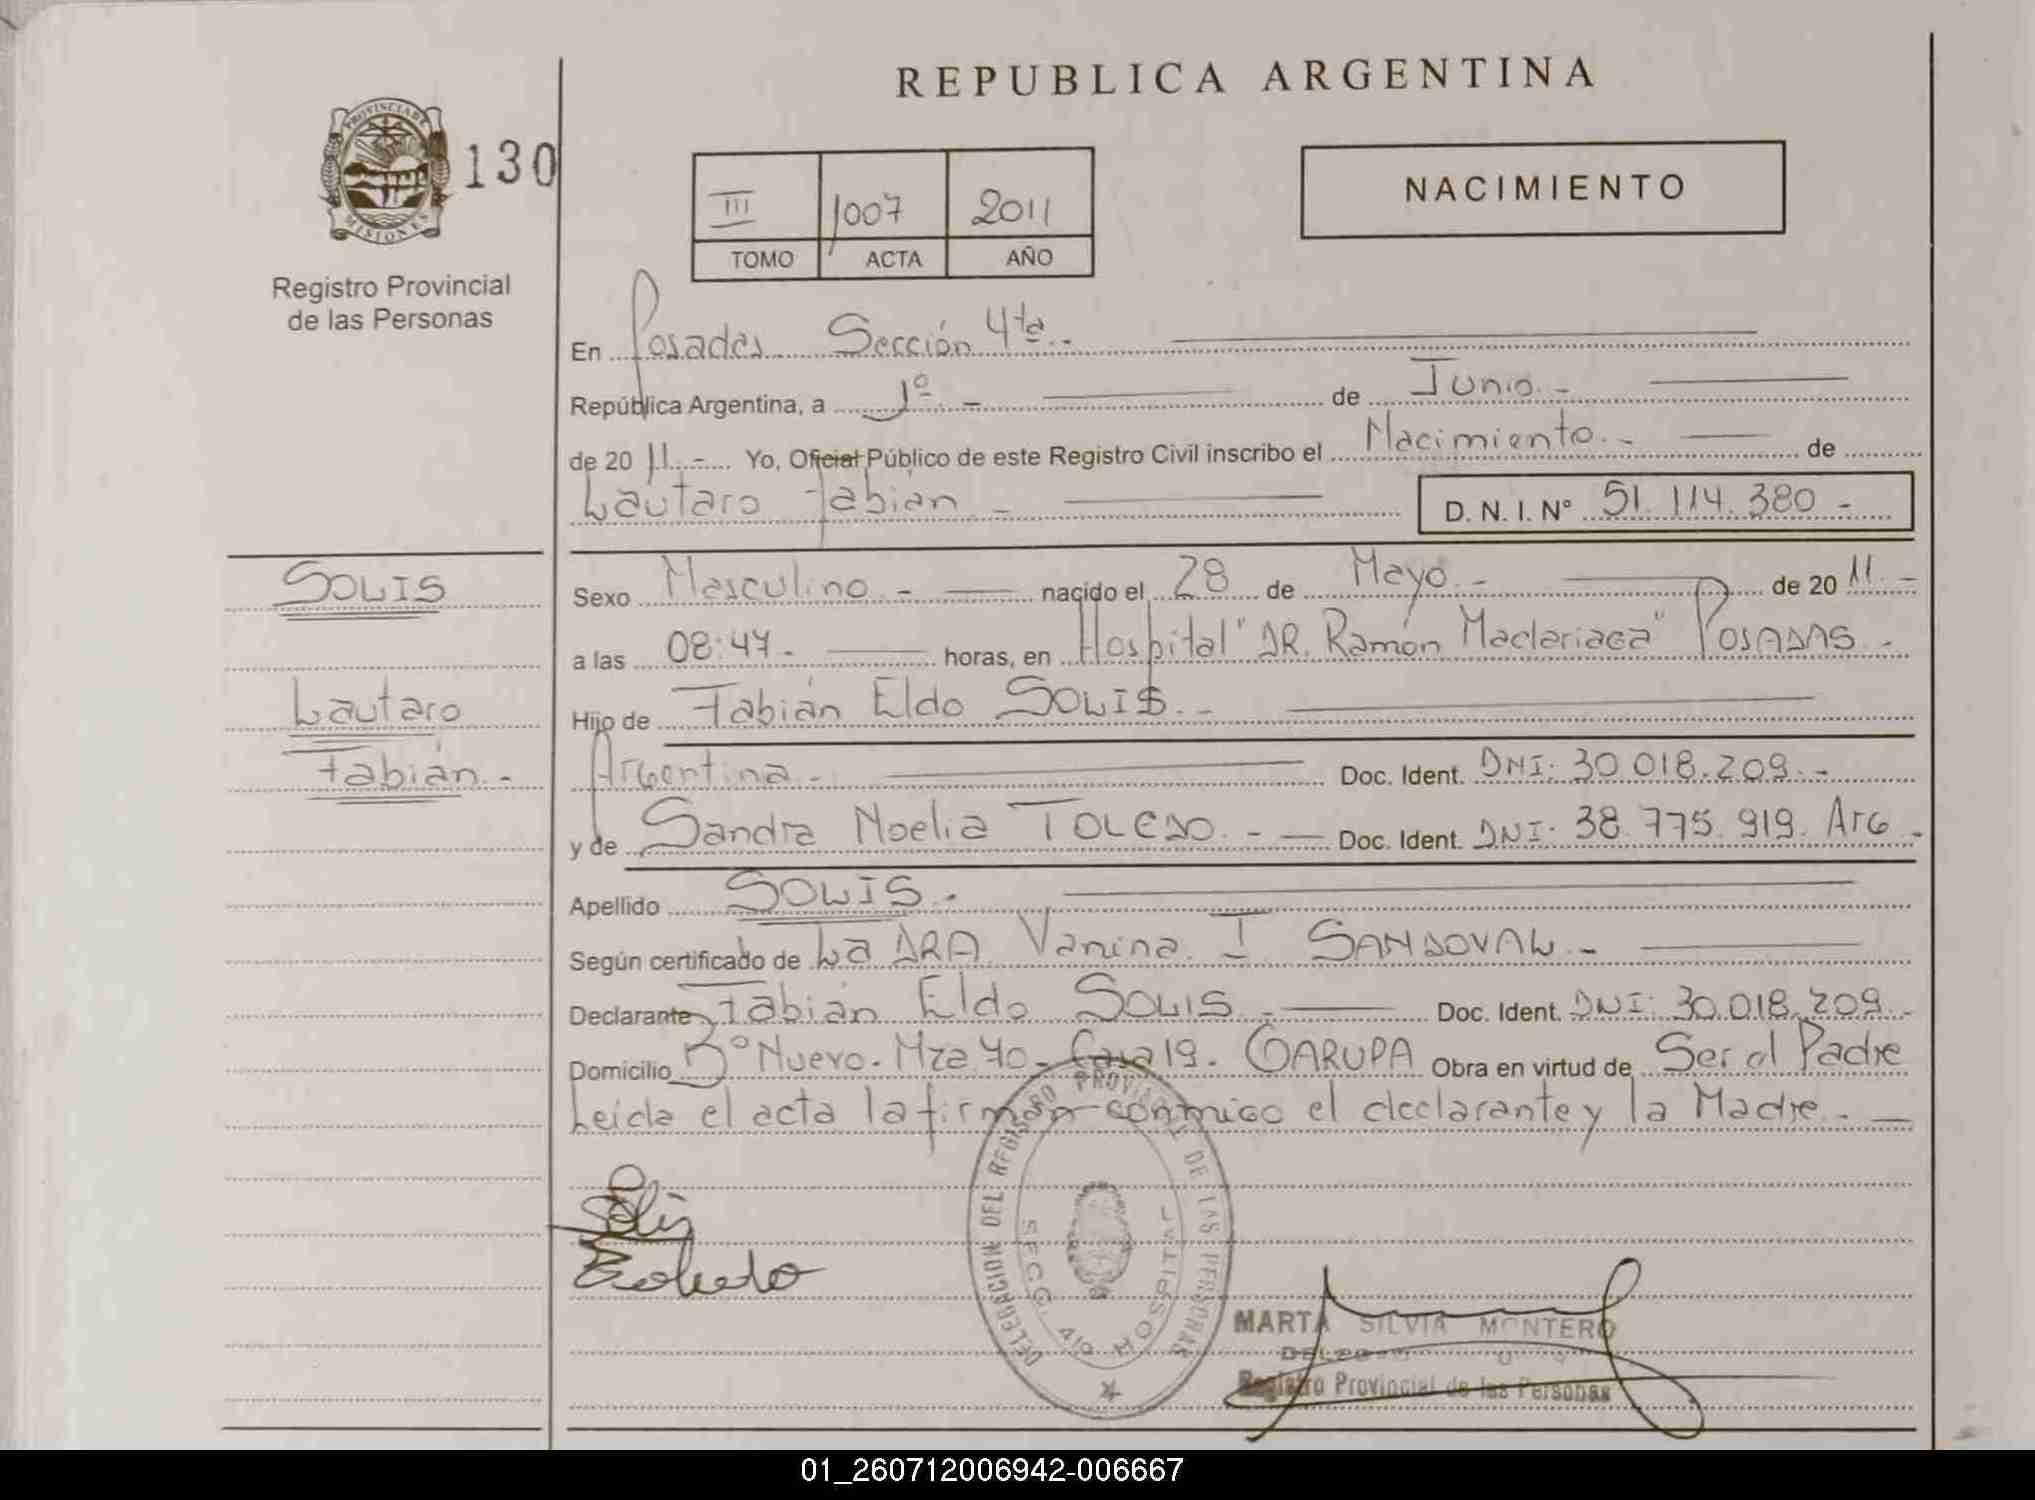 REPUBLICA ARGENTINA
PROVINCIA DE
MISIONES
130
Registro Provincial
de las Personas
III 1007 2011
TOMO ACTA AÑO
NACIMIENTO
En Posadas Sección 4ta.-
República Argentina, a 1º.- de Junio.-
de 20 11.- Yo, Oficial Público de este Registro Civil inscribo el Nacimiento.- de
Lautaro Fabián - D. N. I. Nº 51.114.380 -
SOLIS
Lautaro
Fabián.-
Sexo Masculino.- nacido el 28 de Mayo.- de 20 11.-
a las 08:47.- horas, en Hospital "DR. Ramón Madariaga" POSADAS.-
Hijo de Fabián Eldo SOLIS.-
Argentina.- Doc. Ident. DNI: 30.018.209.-
y de Sandra Noelia TOLEDO.- Doc. Ident. DNI: 38.775.919. Arg.-
Apellido SOLIS.-
Según certificado de La DRA Vanina. I. SANDOVAL.-
Declarante Fabián Eldo SOLIS.- Doc. Ident. DNI: 30.018.209.-
Domicilio Bº Nuevo. Mza 40- Casa 19. GARUPA Obra en virtud de Ser el Padre
Leida el acta la firman conmigo el declarante y la Madre.-
Solis
DELEGACION DEL REGISTRO PROVINCIAL DE LAS PERSONAS
SECC. 4ta HOSPITAL
MARTA SILVIA MONTERO
Registro Provincial de las Personas
01_260712006942-006667